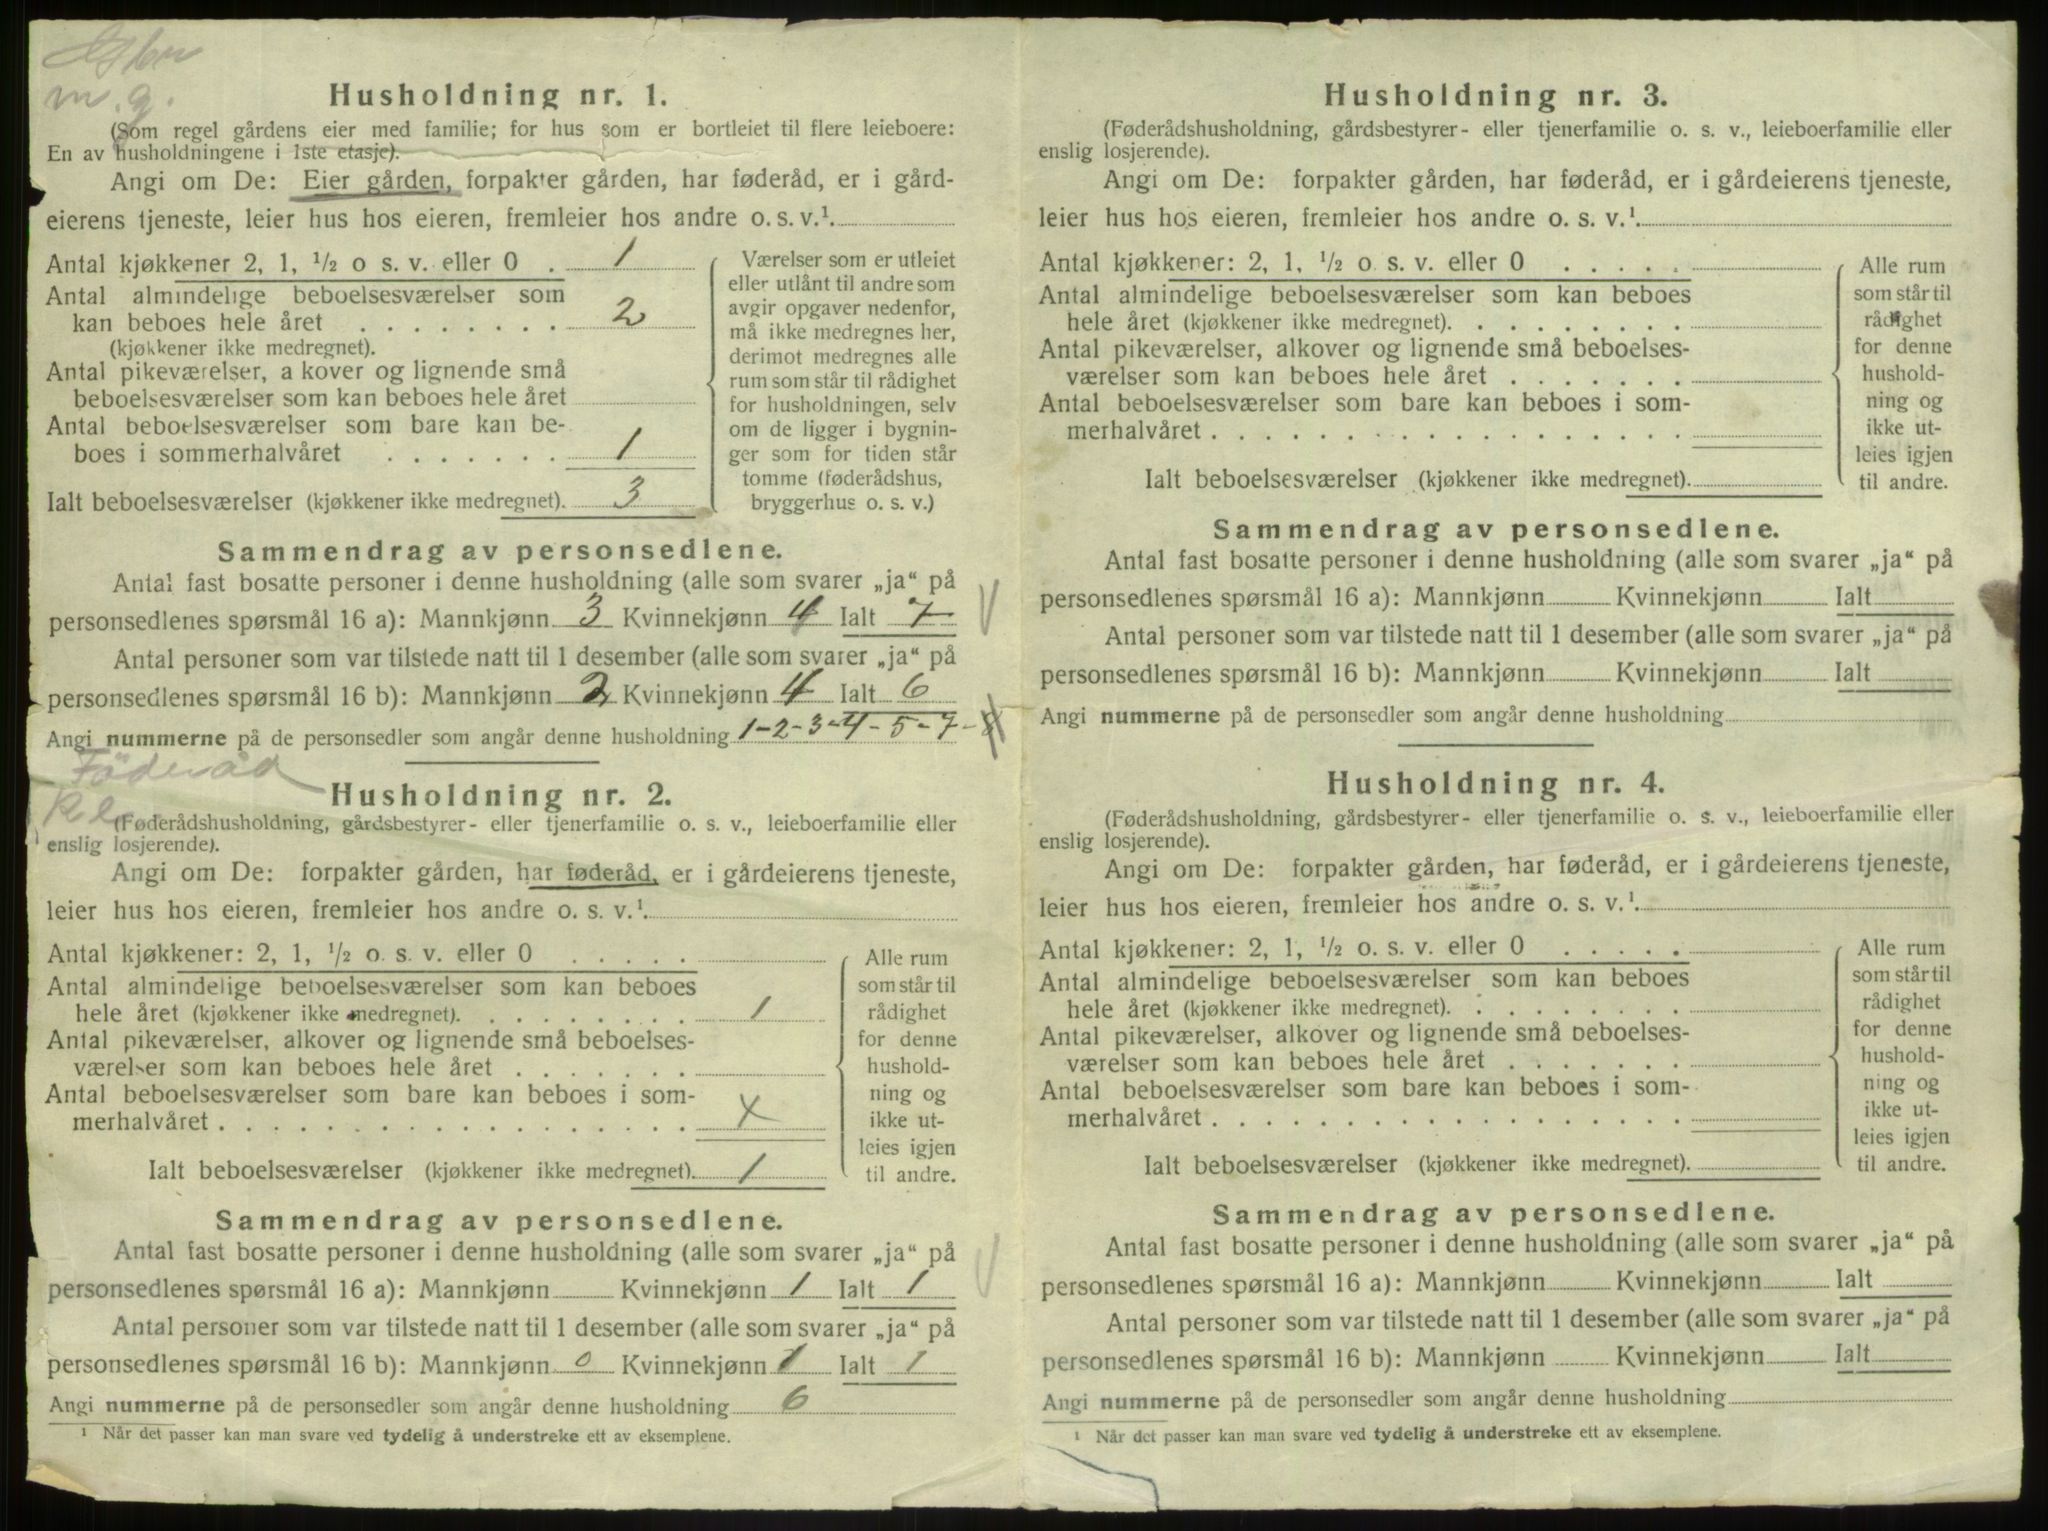 m. g.
Husholdning nr. 1.
(Som regel gårdens eier med familie; for hus som er bortleiet til flere leieboere:
En av husholdningene i 1ste etasje).
Angi om De: Eier gården, forpakter gården, har føderåd, er i gård-
eierens tjeneste, leier hus hos eieren, fremleier hos andre o. s. v.¹.
Antal kjøkkener 2, 1, ½ o s. v. eller 0 . 1
Antal almindelige beboelsesværelser som
kan beboes hele året . . . . . . . . 2
(kjøkkener ikke medregnet).
Antal pikeværelser, a kover og lignende små
beboelsesværelser som kan beboes hele året
Antal beboelsesværelser som bare kan be-
boes i sommerhalvåret . . . . . . . 1
Ialt beboelsesværelser (kjøkkener ikke medregnet). 3
Værelser som er utleiet
eller utlånt til andre som
avgir opgaver nedenfor,
må ikke medregnes her,
derimot medregnes alle
rum som står til rådighet
for husholdningen, selv
om de ligger i bygnin-
ger som for tiden står
tomme (føderådshus,
bryggerhus o. s. v.)
Sammendrag av personsedlene.
Antal fast bosatte personer i denne husholdning (alle som svarer „ja“ på
personsedlenes spørsmål 16 a): Mannkjønn 3 Kvinnekjønn 4 Ialt 7
Antal personer som var tilstede natt til 1 desember (alle som svarer „ja“ på
personsedlenes spørsmål 16 b): Mannkjønn 2 Kvinnekjønn 4 Ialt 6
Angi nummerne på de personsedler som angår denne husholdning 1-2-3-4-5-7-8
Föderåd
Husholdning nr. 2.
(Føderådshusholdning, gårdsbestyrer- eller tjenerfamilie o. s. v., leieboerfamilie eller
enslig losjerende).
Angi om De: forpakter gården, har føderåd, er i gårdeierens tjeneste,
leier hus hos eieren, fremleier hos andre o. s. v.¹.
Antal kjøkkener: 2, 1, ½ o. s. v. eller 0 . . . . .
Antal almindelige beboelsesværelser som kan beboes
hele året (kjøkkener ikke medregnet). . . . . . . . . 1
Antal pikeværelser, alkover og lignende små beboelses-
værelser som kan beboes hele året . . . . . . .
Antal beboelsesværelser som bare kan beboes i som-
merhalvåret . . . . . . . . . . . . . . . . . . x
Ialt beboelsesværelser (kjøkkener ikke medregnet). 1
Alle rum
som står til
rådighet
for denne
hushold-
ning og
ikke ut-
leies igjen
til andre.
Sammendrag av personsedlene.
Antal fast bosatte personer i denne husholdning (alle som svarer „ja“ på
personsedlenes spørsmål 16 a): Mannkjønn Kvinnekjønn 1 Ialt 1
Antal personer som var tilstede natt til 1 desember (alle som svarer „ja“ på
personsedlenes spørsmål 16 b): Mannkjønn 0 Kvinnekjønn 1 Ialt 1
Angi nummerne på de personsedler som angår denne husholdning 6
¹ Når det passer kan man svare ved tydelig å understreke ett av eksemplene.
Husholdning nr. 3.
(Føderådshusholdning, gårdsbestyrer- eller tjenerfamilie o. s. v., leieboerfamilie eller
enslig losjerende).
Angi om De: forpakter gården, har føderåd, er i gårdeierens tjeneste,
leier hus hos eieren, fremleier hos andre o. s. v.¹.
Antal kjøkkener: 2, 1, ½ o. s. v. eller 0 . . . . .
Antal almindelige beboelsesværelser som kan beboes
hele året (kjøkkener ikke medregnet). . . . . . . . .
Antal pikeværelser, alkover og lignende små beboelses-
værelser som kan beboes hele året . . . . . . .
Antal beboelsesværelser som bare kan beboes i som-
merhalvåret . . . . . . . . . . . . . . . . . .
Ialt beboelsesværelser (kjøkkener ikke medregnet).
Alle rum
som står til
rådighet
for denne
hushold-
ning og
ikke ut-
leies igjen
til andre.
Sammendrag av personsedlene.
Antal fast bosatte personer i denne husholdning (alle som svarer „ja“ på
personsedlenes spørsmål 16 a): Mannkjønn Kvinnekjønn Ialt
Antal personer som var tilstede natt til 1 desember (alle som svarer „ja“ på
personsedlenes spørsmål 16 b): Mannkjønn Kvinnekjønn Ialt
Angi nummerne på de personsedler som angår denne husholdning
Husholdning nr. 4.
(Føderådshusholdning, gårdsbestyrer- eller tjenerfamilie o. s. v., leieboerfamilie eller
enslig losjerende).
Angi om De: forpakter gården, har føderåd, er i gårdeierens tjeneste,
leier hus hos eieren, fremleier hos andre o. s. v.¹.
Antal kjøkkener: 2, 1, ½ o. s. v. eller 0 . . . . .
Antal almindelige beboelsesværelser som kan beboes
hele året (kjøkkener ikke medregnet). . . . . . . . .
Antal pikeværelser, alkover og lignende små beboelses-
værelser som kan beboes hele året . . . . . . .
Antal beboelsesværelser som bare kan beboes i som-
merhalvåret . . . . . . . . . . . . . . . . . .
Ialt beboelsesværelser (kjøkkener ikke medregnet).
Alle rum
som står til
rådighet
for denne
hushold-
ning og
ikke ut-
leies igjen
til andre.
Sammendrag av personsedlene.
Antal fast bosatte personer i denne husholdning (alle som svarer „ja“ på
personsedlenes spørsmål 16 a): Mannkjønn Kvinnekjønn Ialt
Antal personer som var tilstede natt til 1 desember (alle som svarer „ja“ på
personsedlenes spørsmål 16 b): Mannkjønn Kvinnekjønn Ialt
Angi nummerne på de personsedler som angår denne husholdning
¹ Når det passer kan man svare ved tydelig å understreke ett av eksemplene.